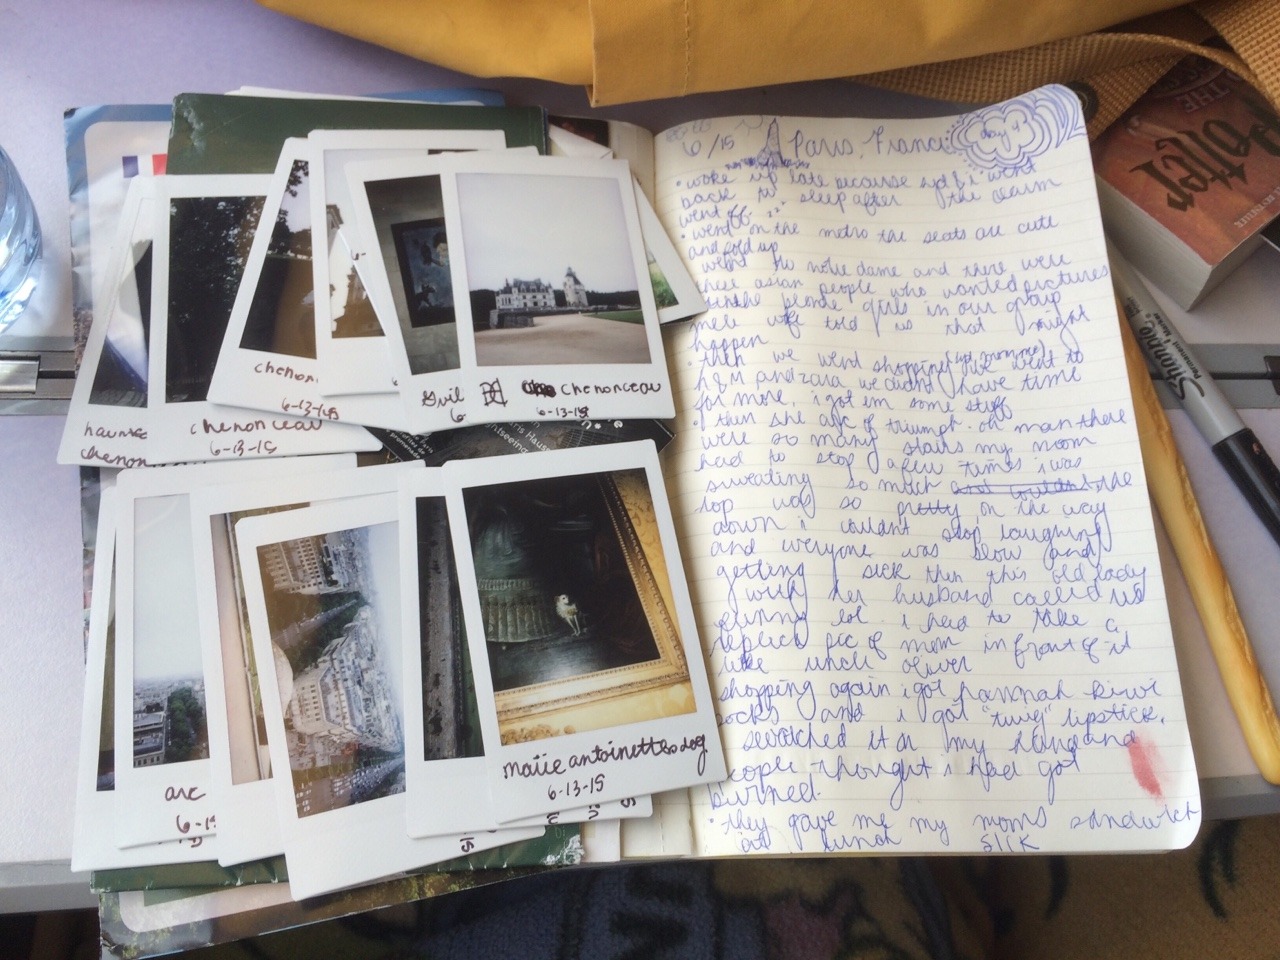 6/15 Paris, France day 4
• woke up late because syd & i went
back to sleep after the alarm
went off
• went on the metro the seats are cute
and fold up
went to notre dame and there were
these asian people who wanted pictures
the blonde girls in our group
told us that might
happen
• then we went shopping we went to
h&m and zara we didnt have time
for more, i got em some stuff
• then the arc of triumph. oh man there
were so many stairs my mom
had to stop a few times i was
sweating so much and couldnt the
top was so pretty on the way
down i couldnt stop laughing
and everyone was slow and
getting sick then this old lady
with her husband called us
funny lol i had to take a
replica pic of mom in front of it
like uncle oliver
shopping again i got hannah kiwi
socks and i got "twig" lipstick,
swatched it on my hand and
people thought i had got
burned.
• they gave me my moms sandwich
at lunch SICK
haunted
chenon
chenonceau
6-13-15
chenon
6-13-15
Evil
6
chenonceau
6-13-15
arc
6-1
15
marie antoinettes dog
6-13-15
Potter
THE
Sharpie
Permanent Marker